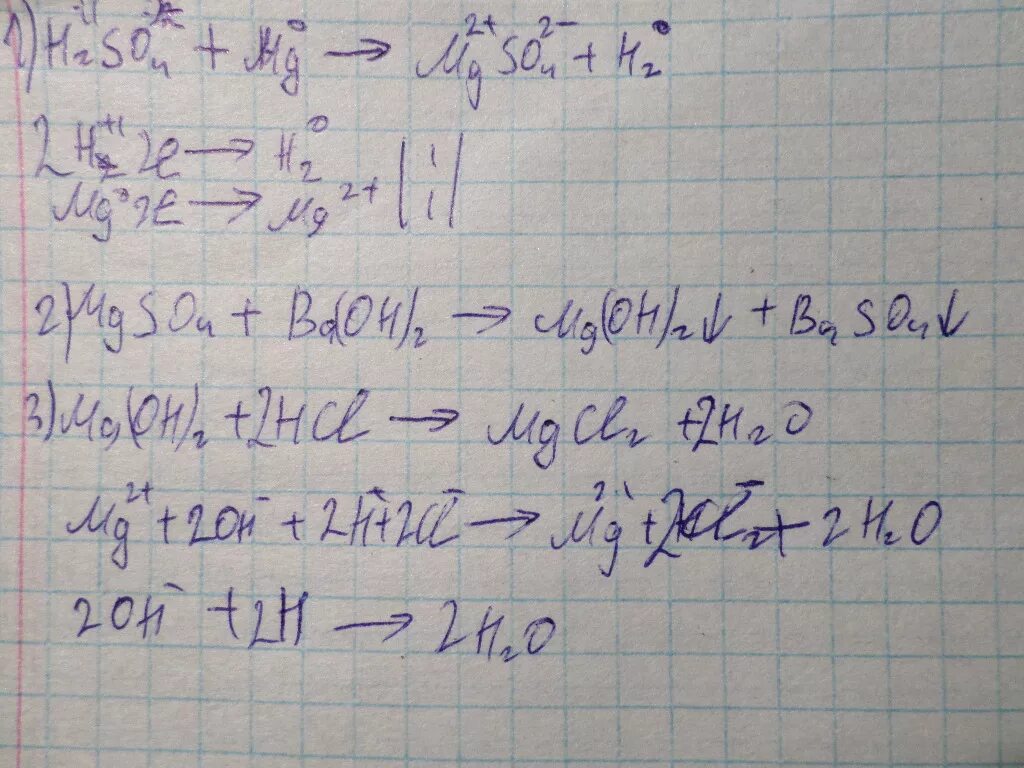 1) H₂SO₄ + Mg⁰ → Mg²⁺SO₄²⁻ + H₂⁰
2H⁺¹ 2e → H₂⁰ | 1 |
Mg⁰ 2e → Mg²⁺ | 1 |
2) MgSO₄ + Ba(OH)₂ → Mg(OH)₂↓ + BaSO₄↓
3) Mg(OH)₂ + 2HCl → MgCl₂ + 2H₂O
Mg²⁺ + 2OH⁻ + 2H⁺ + 2Cl⁻ → Mg²⁺ + 2Cl⁻ + 2H₂O
2OH⁻ + 2H → 2H₂O